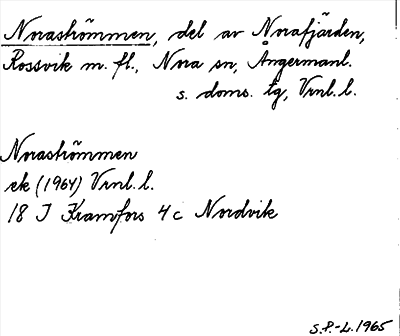 Noraströmmen, del av Norafjärden,
Rossvik m. fl., Nora sn, Ångermanl.
s. doms. tg, Vrnl. l.
Noraströmmen
ek (1964) Vrnl. l.
18 I Kramfors 4c Nordvik
S.P.-L. 1965